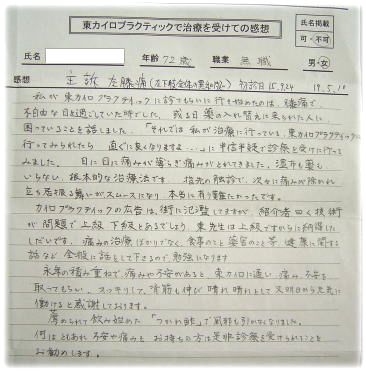 東カイロプラクティックで治療を受けての感想
氏名掲載
可・不可
氏名
年齢 72歳 職業 無職 男・女
感想
主訴 左膝痛(左下肢全体の異和感) 初診日15.9.24 19.5.10
私が東カイロプラクティックに診てもらいに行き始めたのは、膝痛で
不自由な日を過ごしていた時でした。或る日薬の入れ替えに来られた人に
困っていることを話しました。「それでは私が治療に行っている、東カイロプラクティックに
行ってみられたら 直ぐに良くなりますよ…」に半信半疑で診療を受けに行って
みました。日に日に痛みが薄らぎ痛みがとれてきました。湿布も薬も
いらない、根本的な治療法です。指先の触診で、次々に痛みが除かれ
立ち居振る舞いがスムースになり 本当に有り難たかったです。
カイロプラクティックの広告は、街に氾濫してますが、紹介者曰く技術
が問題で上級下級とあるでしょう 東先生は上級ですからに納得した
しだいです。痛みの治療ばかりでなく、食事のこと 栄養のこと等 健康に関する
話など 全般に話をして下さるので、勉強になります
永年の積み重ねで、痛みや不安があると、東カイロに通い 痛み、不安を
取ってもらい、スッキリして、背筋も伸び 晴れ晴れとして 又明日から元気に
働けると感謝しております。
薦められて飲み始めた「つかれ酢」で風邪も引かなくなりました。
何はともあれ 不安や痛みを お持ちの方は是非診療を受けられることを
お勧めします。